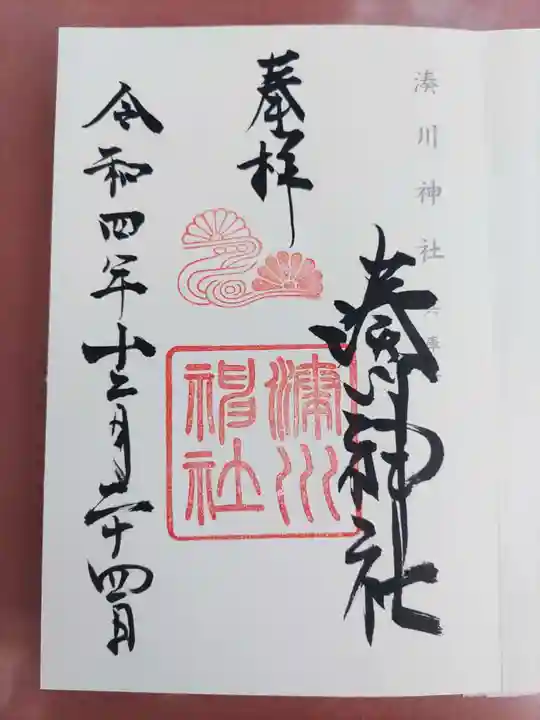 湊川神社 兵庫
奉拝
湊川神社
湊川
神社
令和四年十二月二十四日